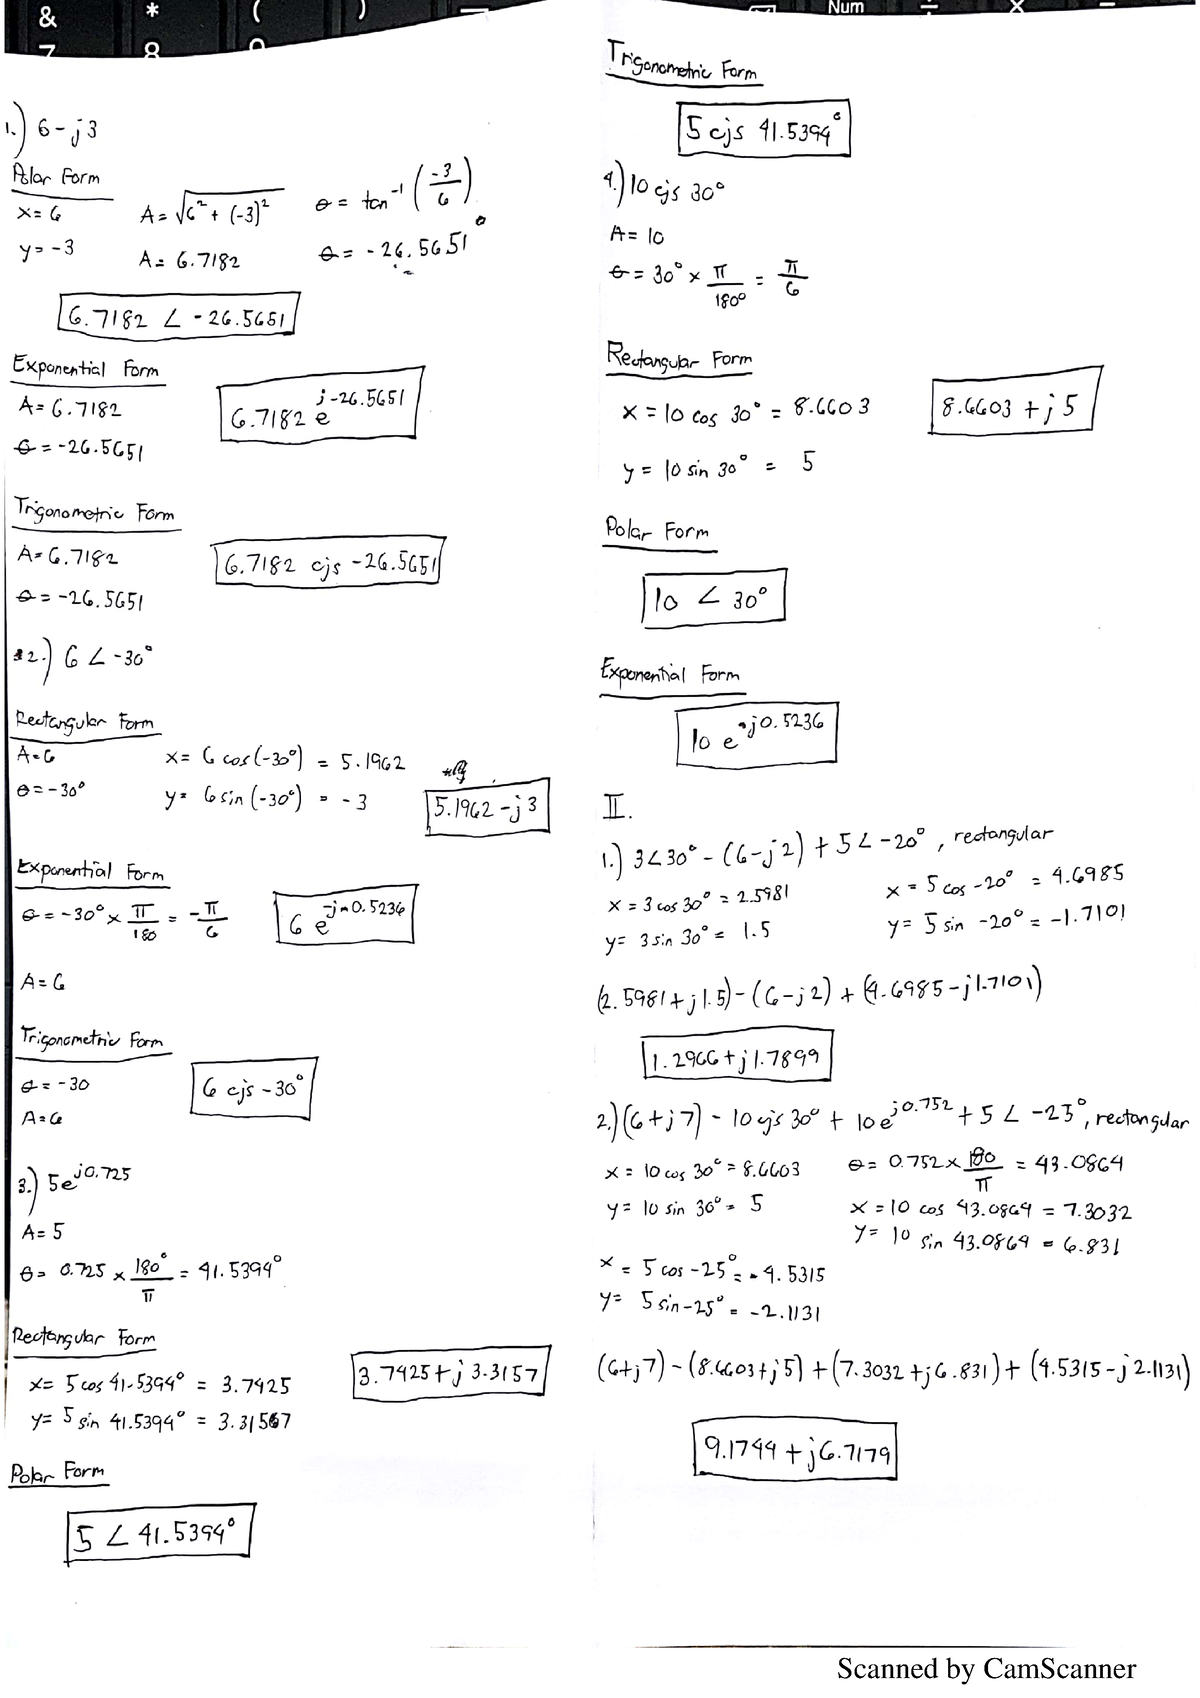 & * ( )
7 8 9
Num ÷ × −
1.) 6-j3
Polar Form
x=6
y=-3
A=√6²+(-3)²
A=6.7182
θ=tan⁻¹(-3/6)
θ=-26.5651°
6.7182 ∠ -26.5651
Exponential Form
A=6.7182
θ=-26.5651
6.7182 e^j-26.5651
Trigonometric Form
A=6.7182
θ=-26.5651
6.7182 cjs -26.5651
2.) 6 ∠ -30°
Rectangular Form
A=6
θ=-30°
x= 6 cos(-30°) = 5.1962
y= 6 sin (-30°) = -3
5.1962 -j3
Exponential Form
θ=-30° × π/180 = -π/6
A=6
6 e^-j0.5236
Trigonometric Form
θ=-30
A=6
6 cjs -30°
3.) 5e^j0.725
A=5
θ= 0.725 × 180°/π = 41.5394°
Rectangular Form
x= 5 cos 41.5394° = 3.7425
y= 5 sin 41.5394° = 3.31567
3.7425+j 3.3157
Polar Form
5 ∠ 41.5394°
Trigonometric Form
5 cjs 41.5394°
4.) 10 cjs 30°
A= 10
θ= 30° × π/180° = π/6
Rectangular Form
x = 10 cos 30° = 8.6603
y = 10 sin 30° = 5
8.6603 + j5
Polar Form
10 ∠ 30°
Exponential Form
10 e^j0.5236
II.
1.) 3∠30° - (6-j2) + 5∠-20°, rectangular
x = 3 cos 30° = 2.5981
y= 3 sin 30° = 1.5
x = 5 cos -20° = 4.6985
y= 5 sin -20° = -1.7101
(2.5981+j1.5)-(6-j2)+(4.6985-j1.7101)
1.2966+j1.7899
2.) (6+j7) - 10 cjs 30° + 10e^j0.752 + 5 ∠ -25°, rectangular
x = 10 cos 30° = 8.6603
y = 10 sin 30° = 5
θ= 0.752× 180/π = 43.0864
x = 10 cos 43.0864 = 7.3032
y= 10 sin 43.0864 = 6.831
x = 5 cos -25° = 4.5315
y= 5 sin-25° = -2.1131
(6+j7)-(8.6603+j5)+(7.3032+j6.831)+(4.5315-j2.1131)
9.1744+j6.7179
Scanned by CamScanner